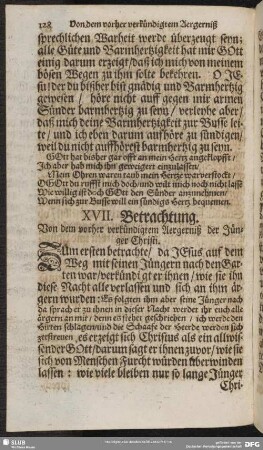 128 Von dem vorher verkündigtem Aergerniß
sprechlichen Warheit werde überzeugt seyn;
alle Güte und Barmhertzigkeit hat mir GOtt
einig darum erzeigt/daß ich mich von meinem
bösen Wegen zu ihm solte bekehren. O JE-
su/der du bißher bist gnädig und Barmhertzig
gewesen / höre nicht auff gegen mir armen
Sünder barmhertzig zu seyn/ verleyhe aber/
daß mich deine Barmhertzigkeit zur Busse lei-
te/ und ich eben darum auffhöre zu sündigen/
weil du nicht auffhörest barmhertzig zu seyn.
GOtt hat bisher gar offt an mein Hertz angeklopfft/
Ich aber hab mich ihn geweigert einzulassen/
Mein Ohren waren taub mein Hertze war verstockt/
GOtt du ruffst mich doch und wilt mich noch nicht lassen
Wie willig ist doch GOtt den Sünder anzunehmen/
Wenn sich zur Busse will ein sündigs Hertz bequemen.
XVII. Betrachtung.
Von dem vorher verkündigtem Aergerniß der Jün-
ger Christi.
ZUm ersten betrachte/ da JEsus auf dem
Weg mit seinen Jüngern nach den Gar-
ten war/verkündigt er ihnen/ wie sie ihn
diese Nacht alle verlassen und sich an ihm
ärgern wurden: Es folgten ihm aber seine Jünger nach
da sprach er zu ihnen in dieser Nacht werdet ihr euch alle
ärgern an mir/ denn es stehet geschrieben / ich werde den
Hirten schlagen und die Schaafe der Heerde werden sich
zerstreuen, es erzeigt sich Christus als ein allwis-
sender GOtt/darum sagt er ihnen zuvor/wie sie
sich von Menschen Furcht würden überwinden
lassen: wie viele bleiben nur so lange Jünger
Chri-
SLUB